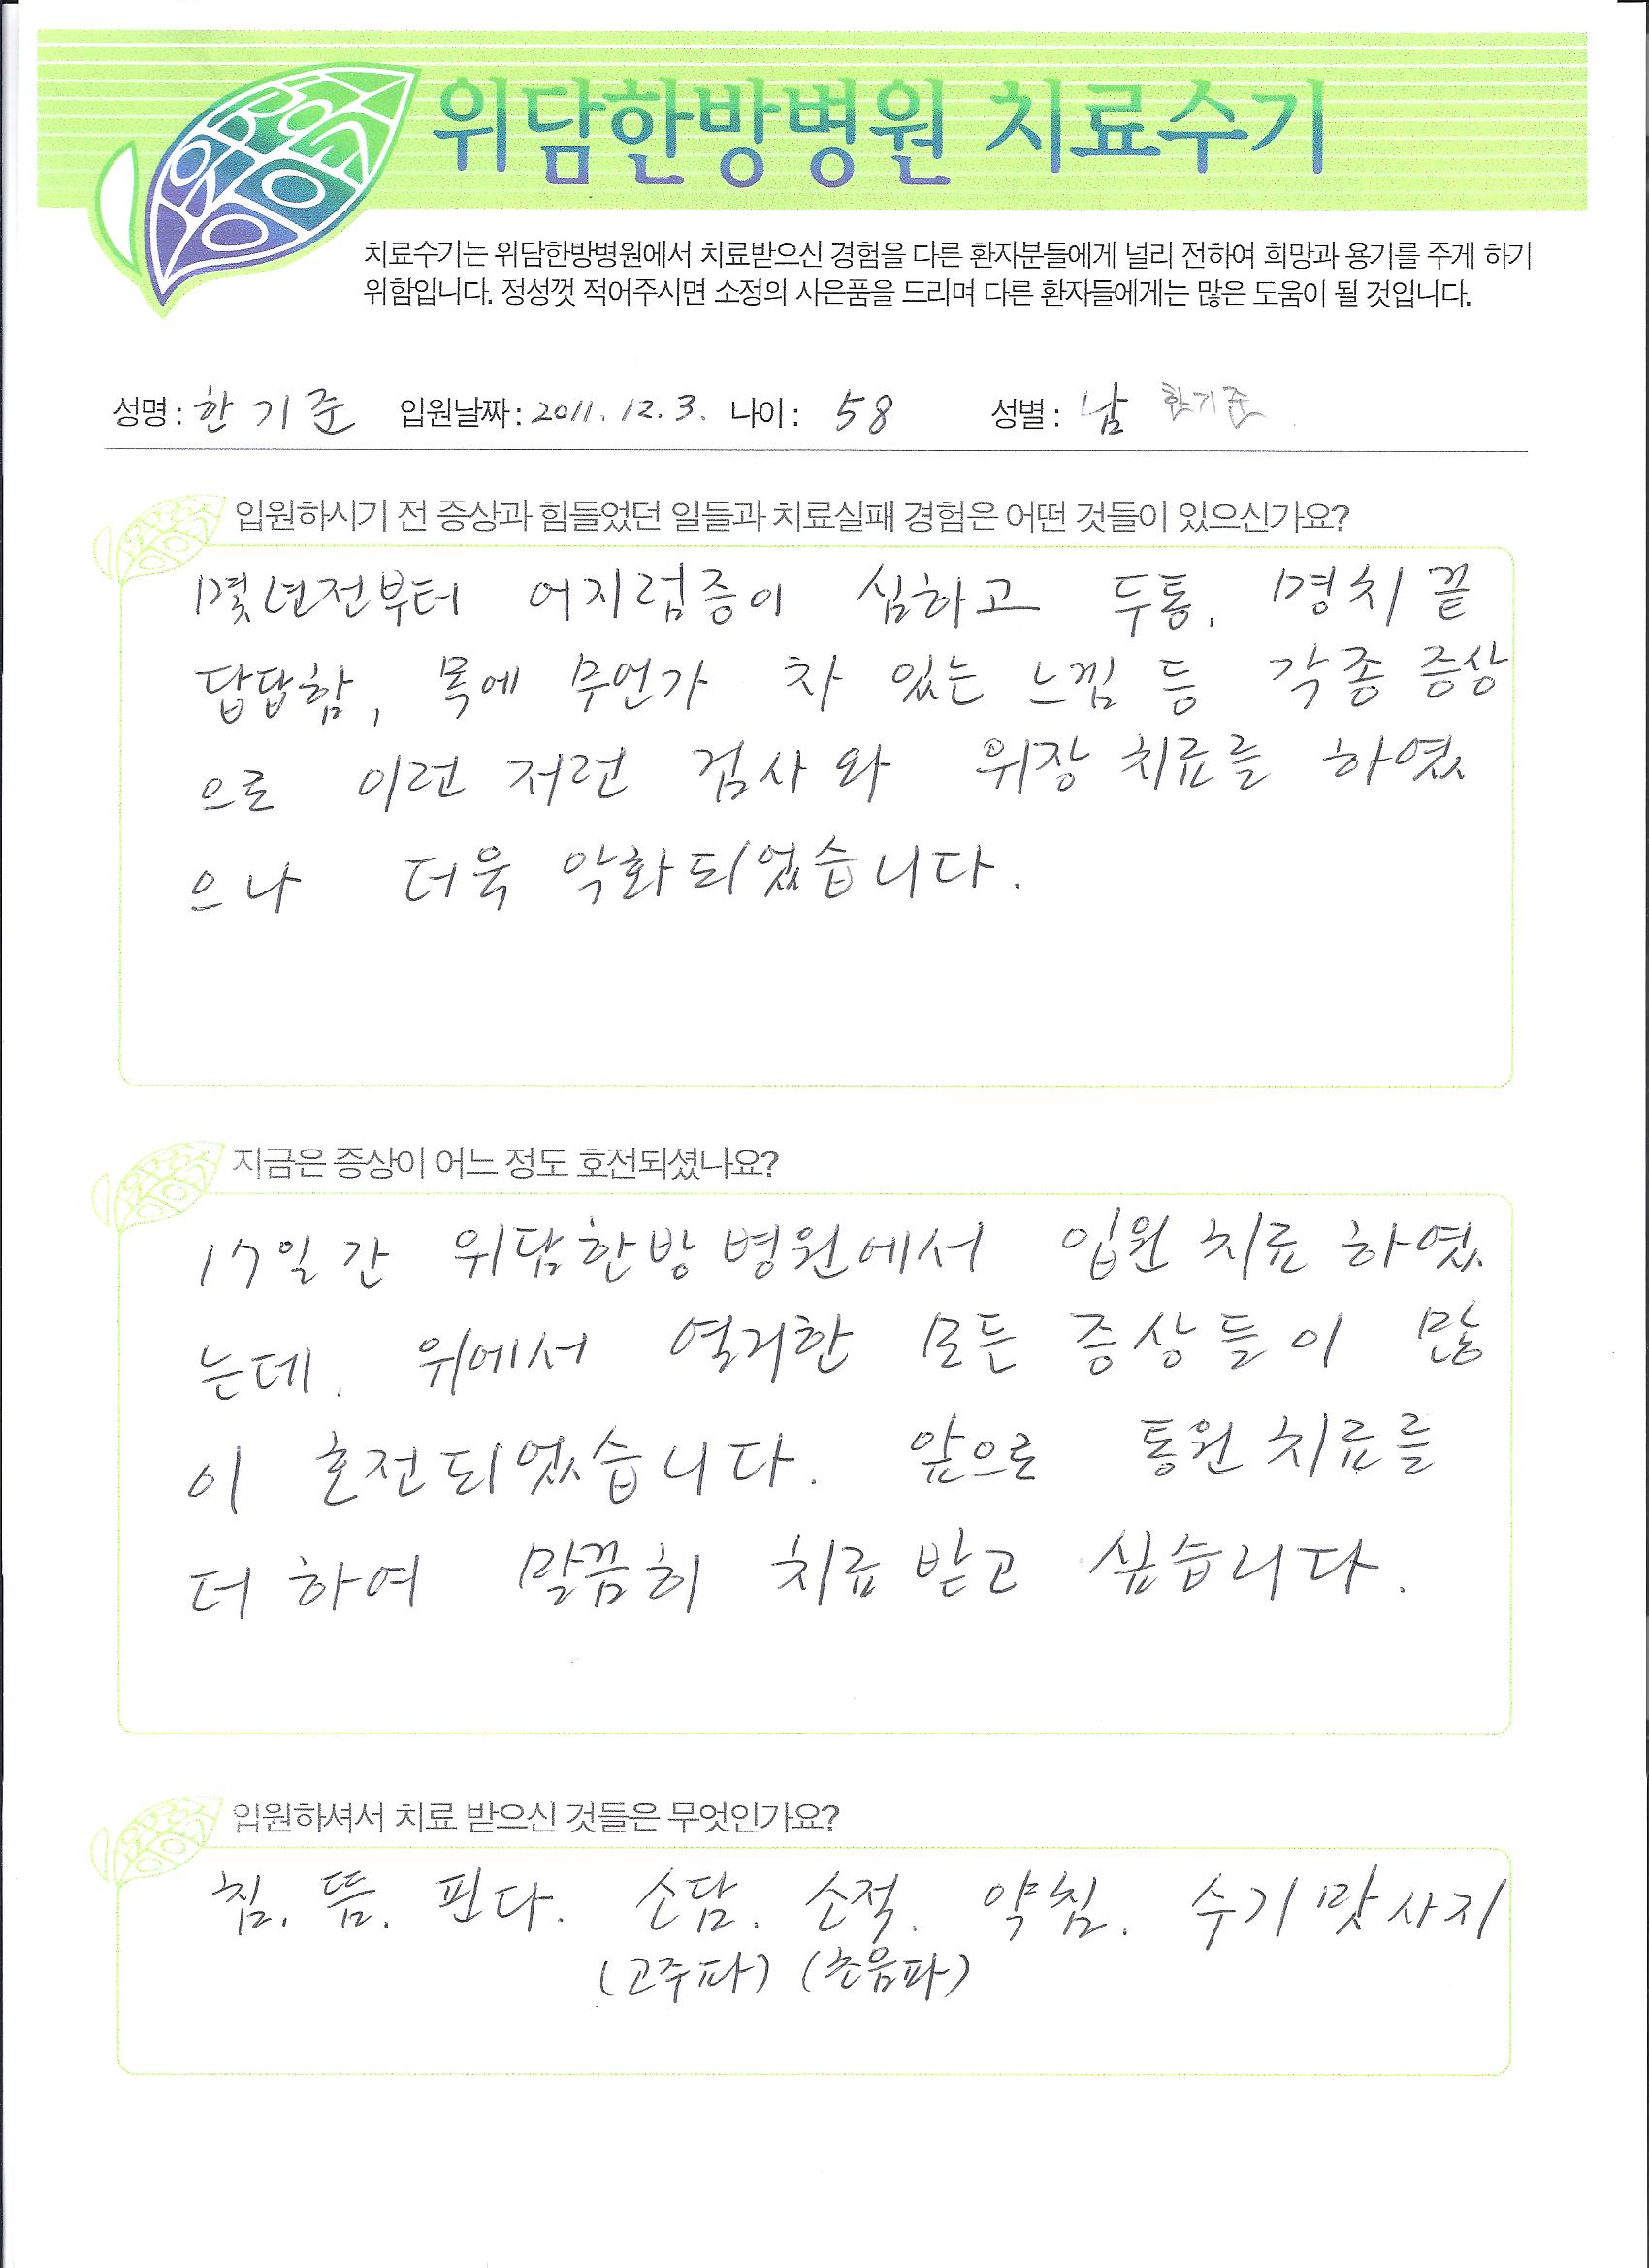 위담한방병원 치료수기
치료수기는 위담한방병원에서 치료받으신 경험을 다른 환자분들에게 널리 전하여 희망과 용기를 주게 하기
위함입니다. 정성껏 적어주시면 소정의 사은품을 드리며 다른 환자들에게는 많은 도움이 될 것입니다.
성명 : 한기준 입원날짜 : 2011. 12. 3. 나이 : 58 성별 : 남 한기준
입원하시기 전 증상과 힘들었던 일들과 치료실패 경험은 어떤 것들이 있으신가요?
몇년전부터 어지럼증이 심하고 두통, 명치끝
답답함, 목에 무언가 차 있는 느낌 등 각종 증상
으로 이런 저런 검사와 위장 치료를 하였
으나 더욱 악화되었습니다.
지금은 증상이 어느 정도 호전되셨나요?
17일간 위담한방병원에서 입원 치료 하였
는데. 위에서 열거한 모든 증상들이 많
이 호전되었습니다. 앞으로 통원 치료를
더 하여 말끔히 치료 받고 싶습니다.
입원하셔서 치료 받으신 것들은 무엇인가요?
침. 뜸. 핀다. 소담. 소적. 약침. 수기 맛사지
(고주파) (초음파)